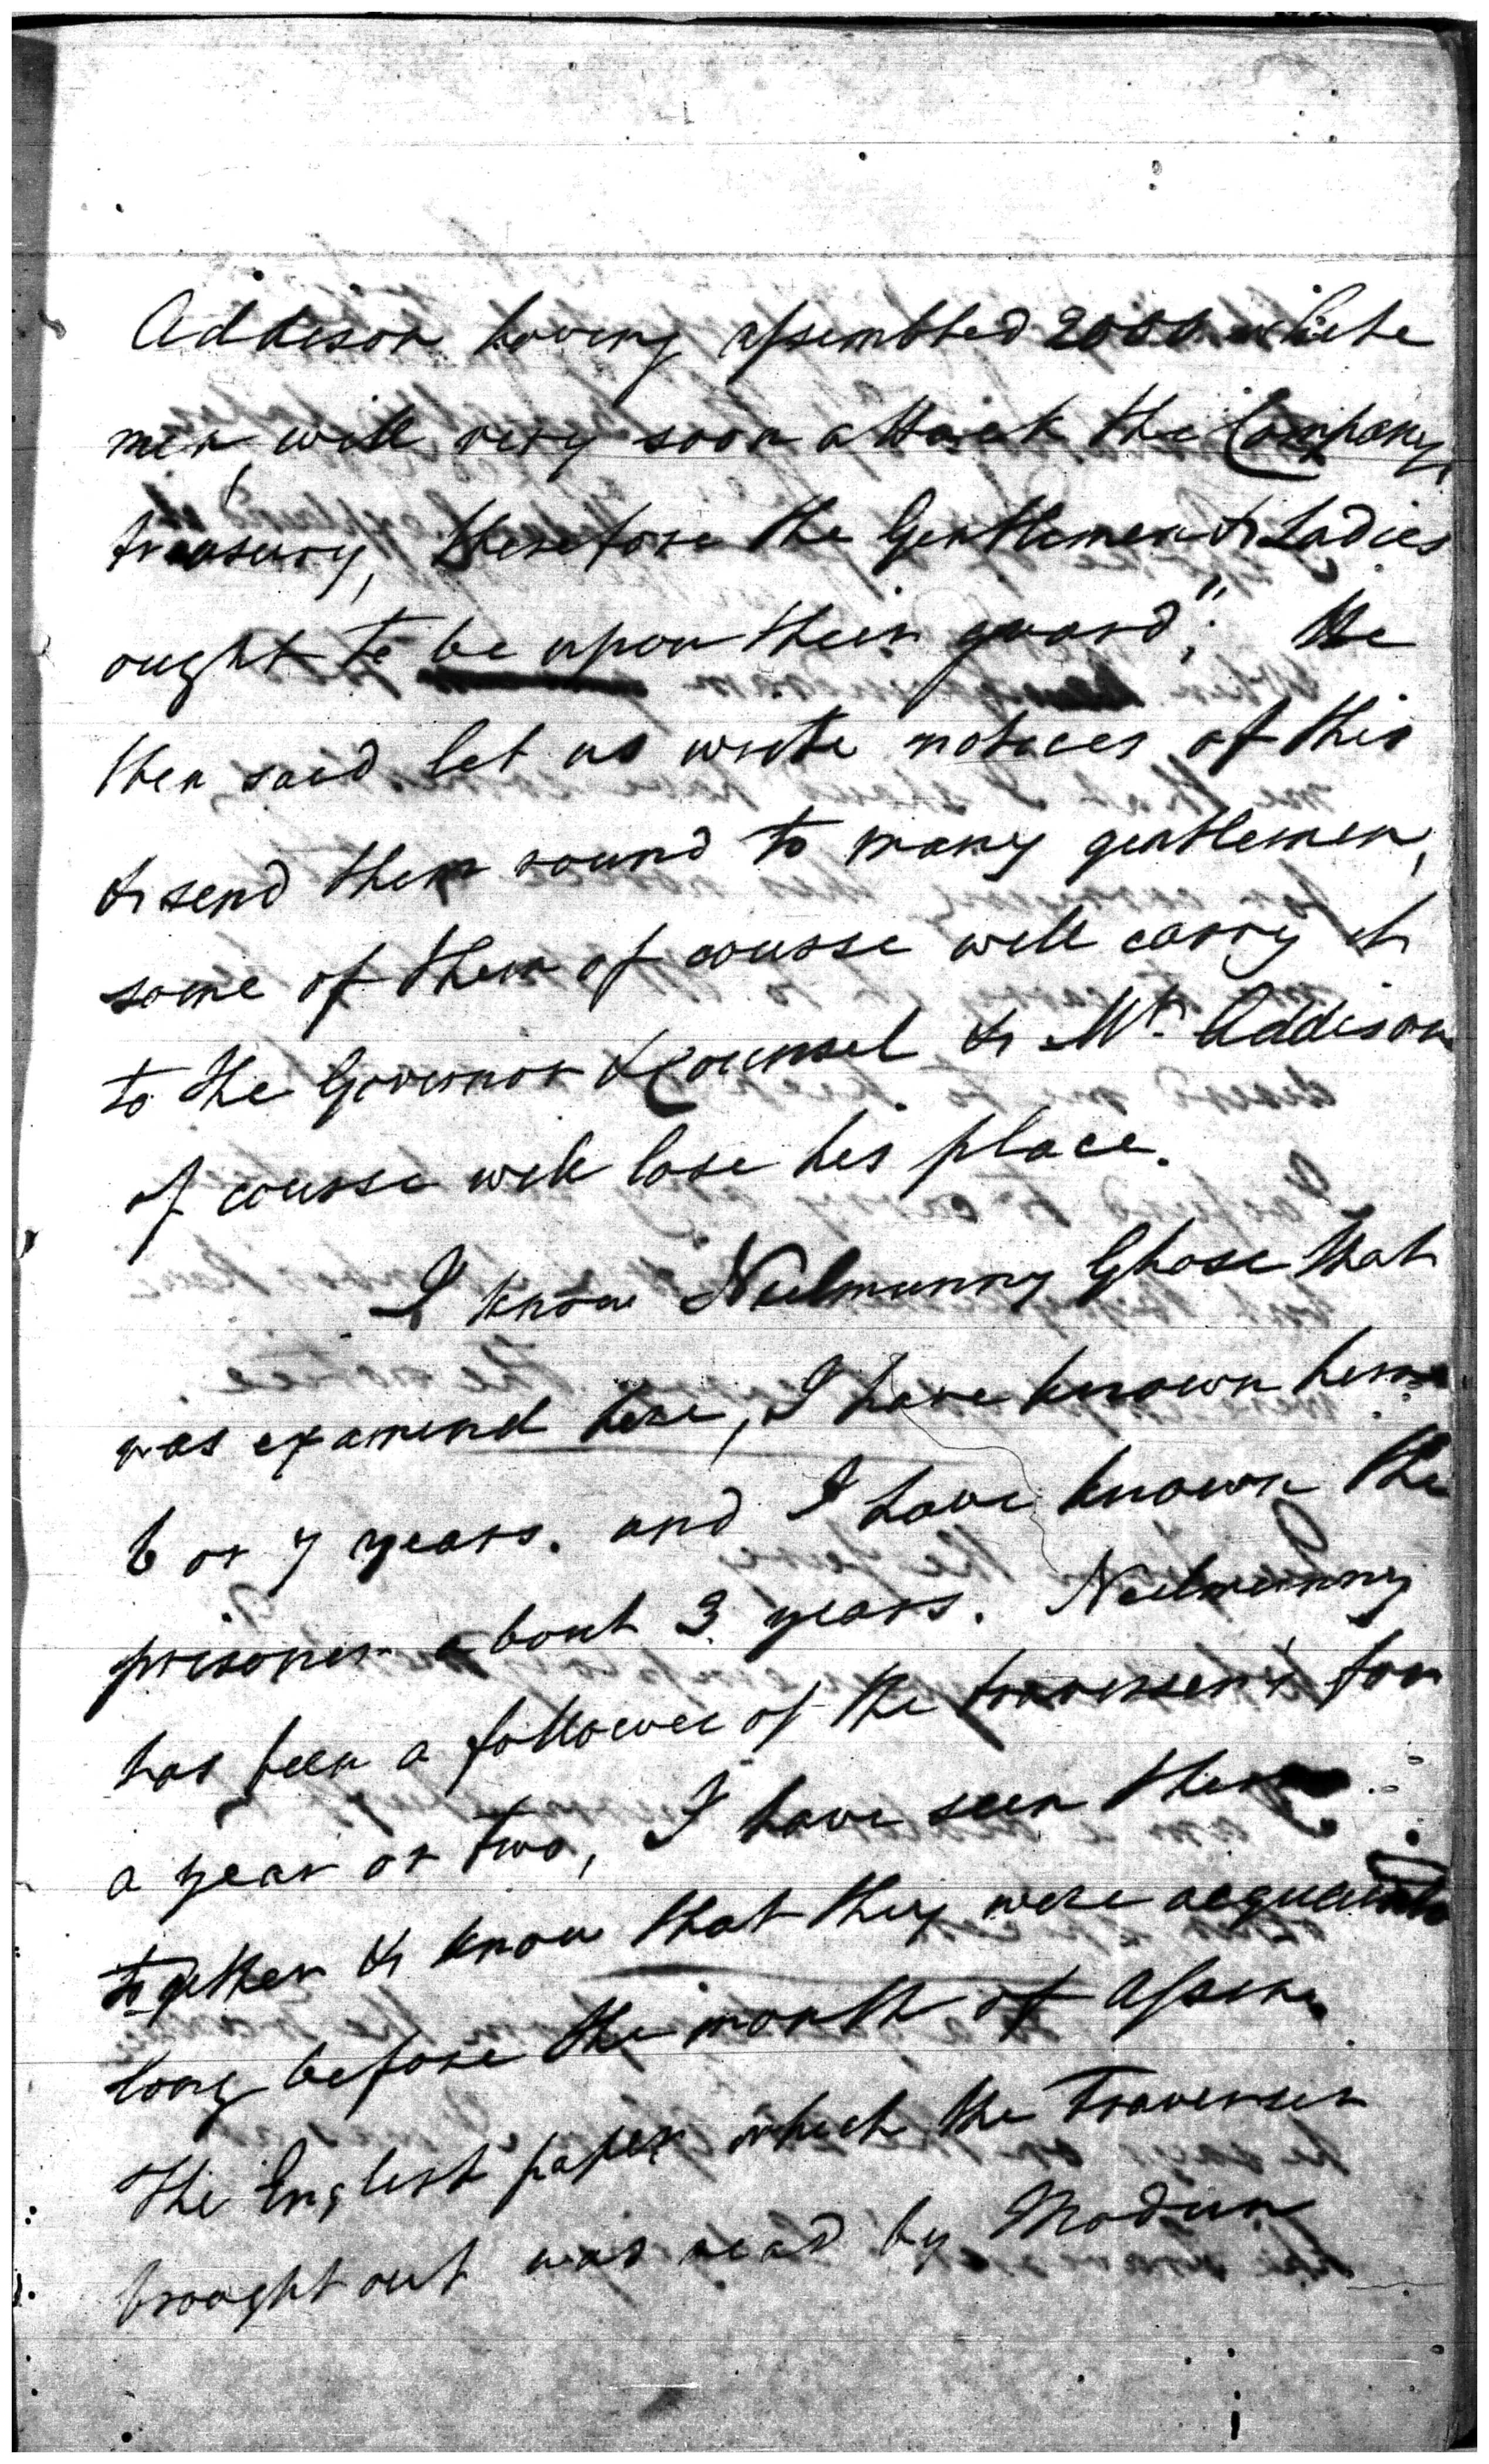 Addison having assembled 2000 white
men, will very soon attack the Companys
treasury, therefore the Gentlemen & Ladies
ought to be upon their guard"; He
then said let us write notices of this
& send them round to many gentlemen,
some of them of course will carry it
to the Governor & Counsel & Mr. Addison
of course will lose his place.
I know Neelmunny Ghose that
was examined here, I have known him
6 or 7 years. and I have known the
prisoner about 3 years. Neelmunny
has been a follower of the traverser's for
a year or two, I have seen them
together & know that they were
long before the month of Assin.
The English paper which the Traverser
brought out was read by Modun